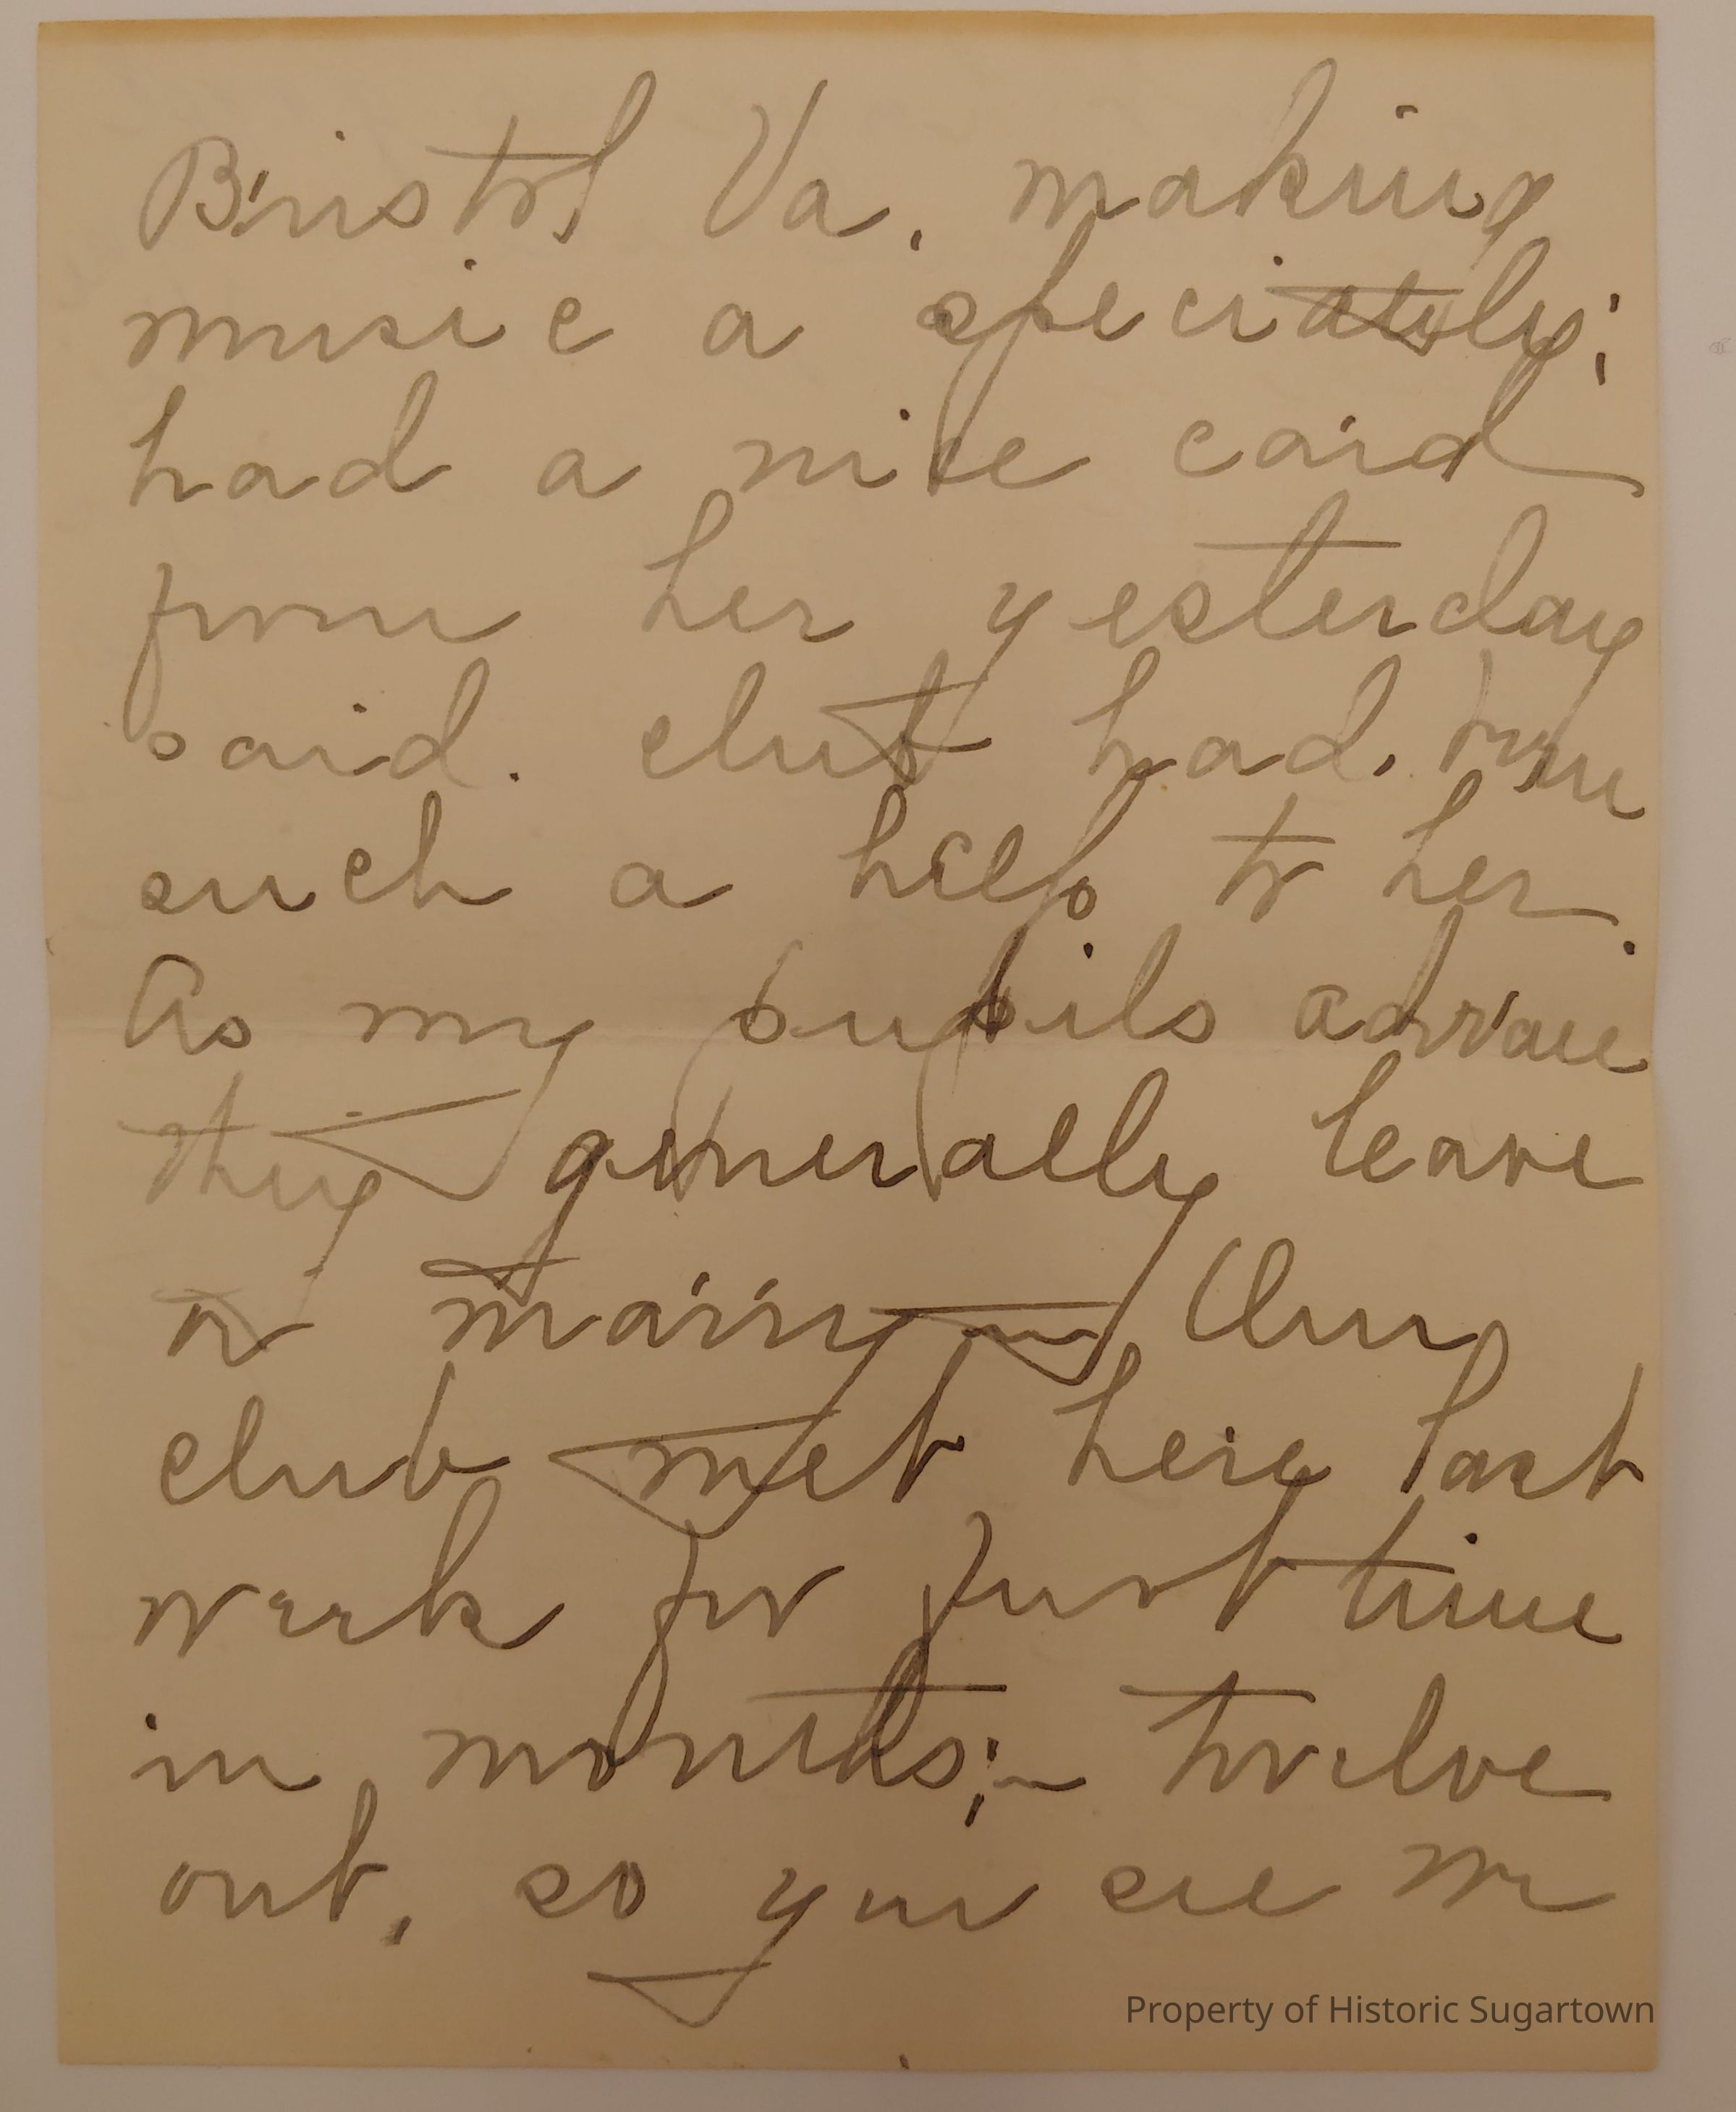 Bristol Va. making
music a speciality;
had a nice card
from her yesterday
said. club had. been
such a help to her.
As my pupils advance
they generally leave
or marry — Our
club met here last
week for first time
in months;— twelve
out, so you see we
Property of Historic Sugartown